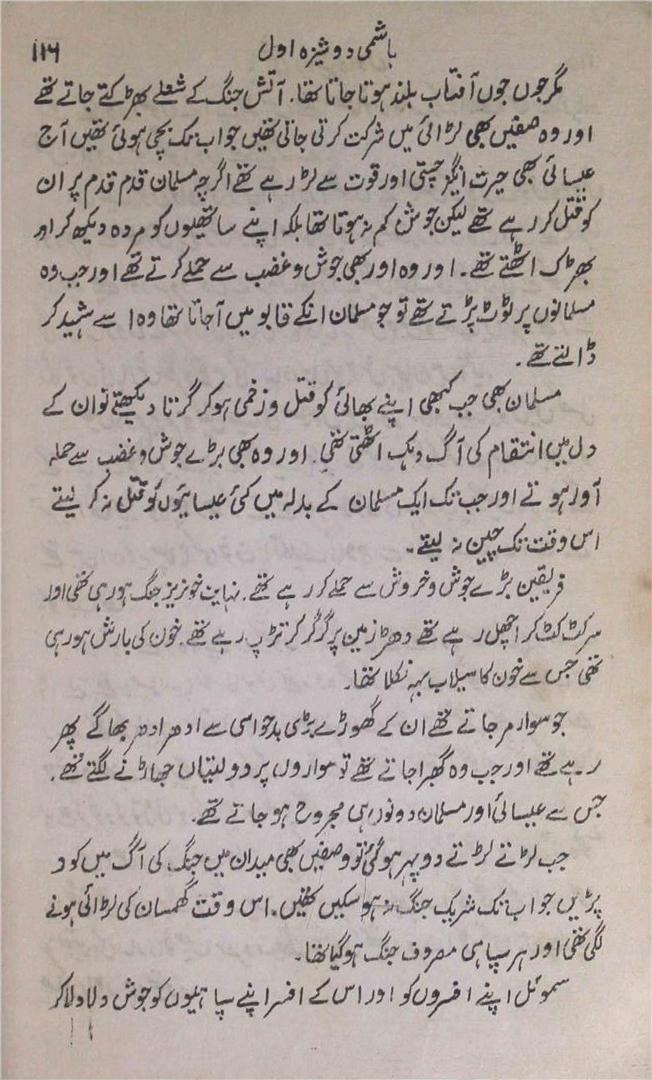 ہاشمی دوشیزہ اول ۱۱۶
مگر جوں جوں آفتاب بلند ہوتا جاتا تھا۔ آتش جنگ کے شعلے بھڑکتے جاتے تھے
اور وہ صفیں بھی لڑائی میں شرکت کرتی جاتی تھیں جو اب تک بچی ہوئی تھیں آج
عیسائی بھی حیرت انگیز چستی اور قوت سے لڑ رہے تھے اگرچہ مسلمان قدم قدم پر ان
کو قتل کر رہے تھے لیکن جوش کم نہ ہوتا تھا بلکہ اپنے ساتھیوں کو مردہ دیکھ کر اور
بھڑک اٹھتے تھے۔ اور وہ اور بھی جوش و غضب سے حملے کرتے تھے اور جب وہ
مسلمانوں پر ٹوٹ پڑتے تھے تو جو مسلمان انکے قابو میں آجاتا تھا وہ اسے شہید کر
ڈالتے تھے۔
مسلمان بھی جب کبھی اپنے بھائی کو قتل و زخمی ہو کر گرتا دیکھتے تو ان کے
دل میں انتقام کی آگ دہک اٹھتی تھی۔ اور وہ بھی بڑے جوش و غضب سے حملہ
آور ہوتے اور جب تک ایک مسلمان کے بدلہ میں کئی عیسائیوں کو قتل نہ کر لیتے
اس وقت تک چین نہ لیتے۔
فریقین بڑے جوش و خروش سے حملے کر رہے تھے۔ نہایت خونریز جنگ ہو رہی تھی اور
سر کٹ کٹ کر اچھل رہے تھے دھڑ زمین پر گر گر کر تڑپ رہے تھے۔ خون کی بارش ہو رہی
تھی جس سے خون کا سیلاب بہہ نکلا تھا۔
جو سوار مر جاتے تھے ان کے گھوڑے بڑی بدحواسی سے ادھر ادھر بھاگے پھر
رہے تھے اور جب وہ گھبرا جاتے تھے تو سواروں پر دولتیاں جھاڑنے لگتے تھے۔
جس سے عیسائی اور مسلمان دونوں ہی مجروح ہو جاتے تھے۔
جب لڑتے لڑتے دوپہر ہو گئی تو وہ صفیں بھی میدان میں جنگ کی آگ میں کود
پڑیں جو اب تک شریک جنگ نہ ہو سکیں تھیں۔ اس وقت گھمسان کی لڑائی ہونے
لگی تھی اور ہر سپاہی مصروف جنگ ہو گیا تھا۔
سموئل اپنے افسروں کو اور اس کے افسر اپنے سپاہیوں کو جوش دلا دلا کر